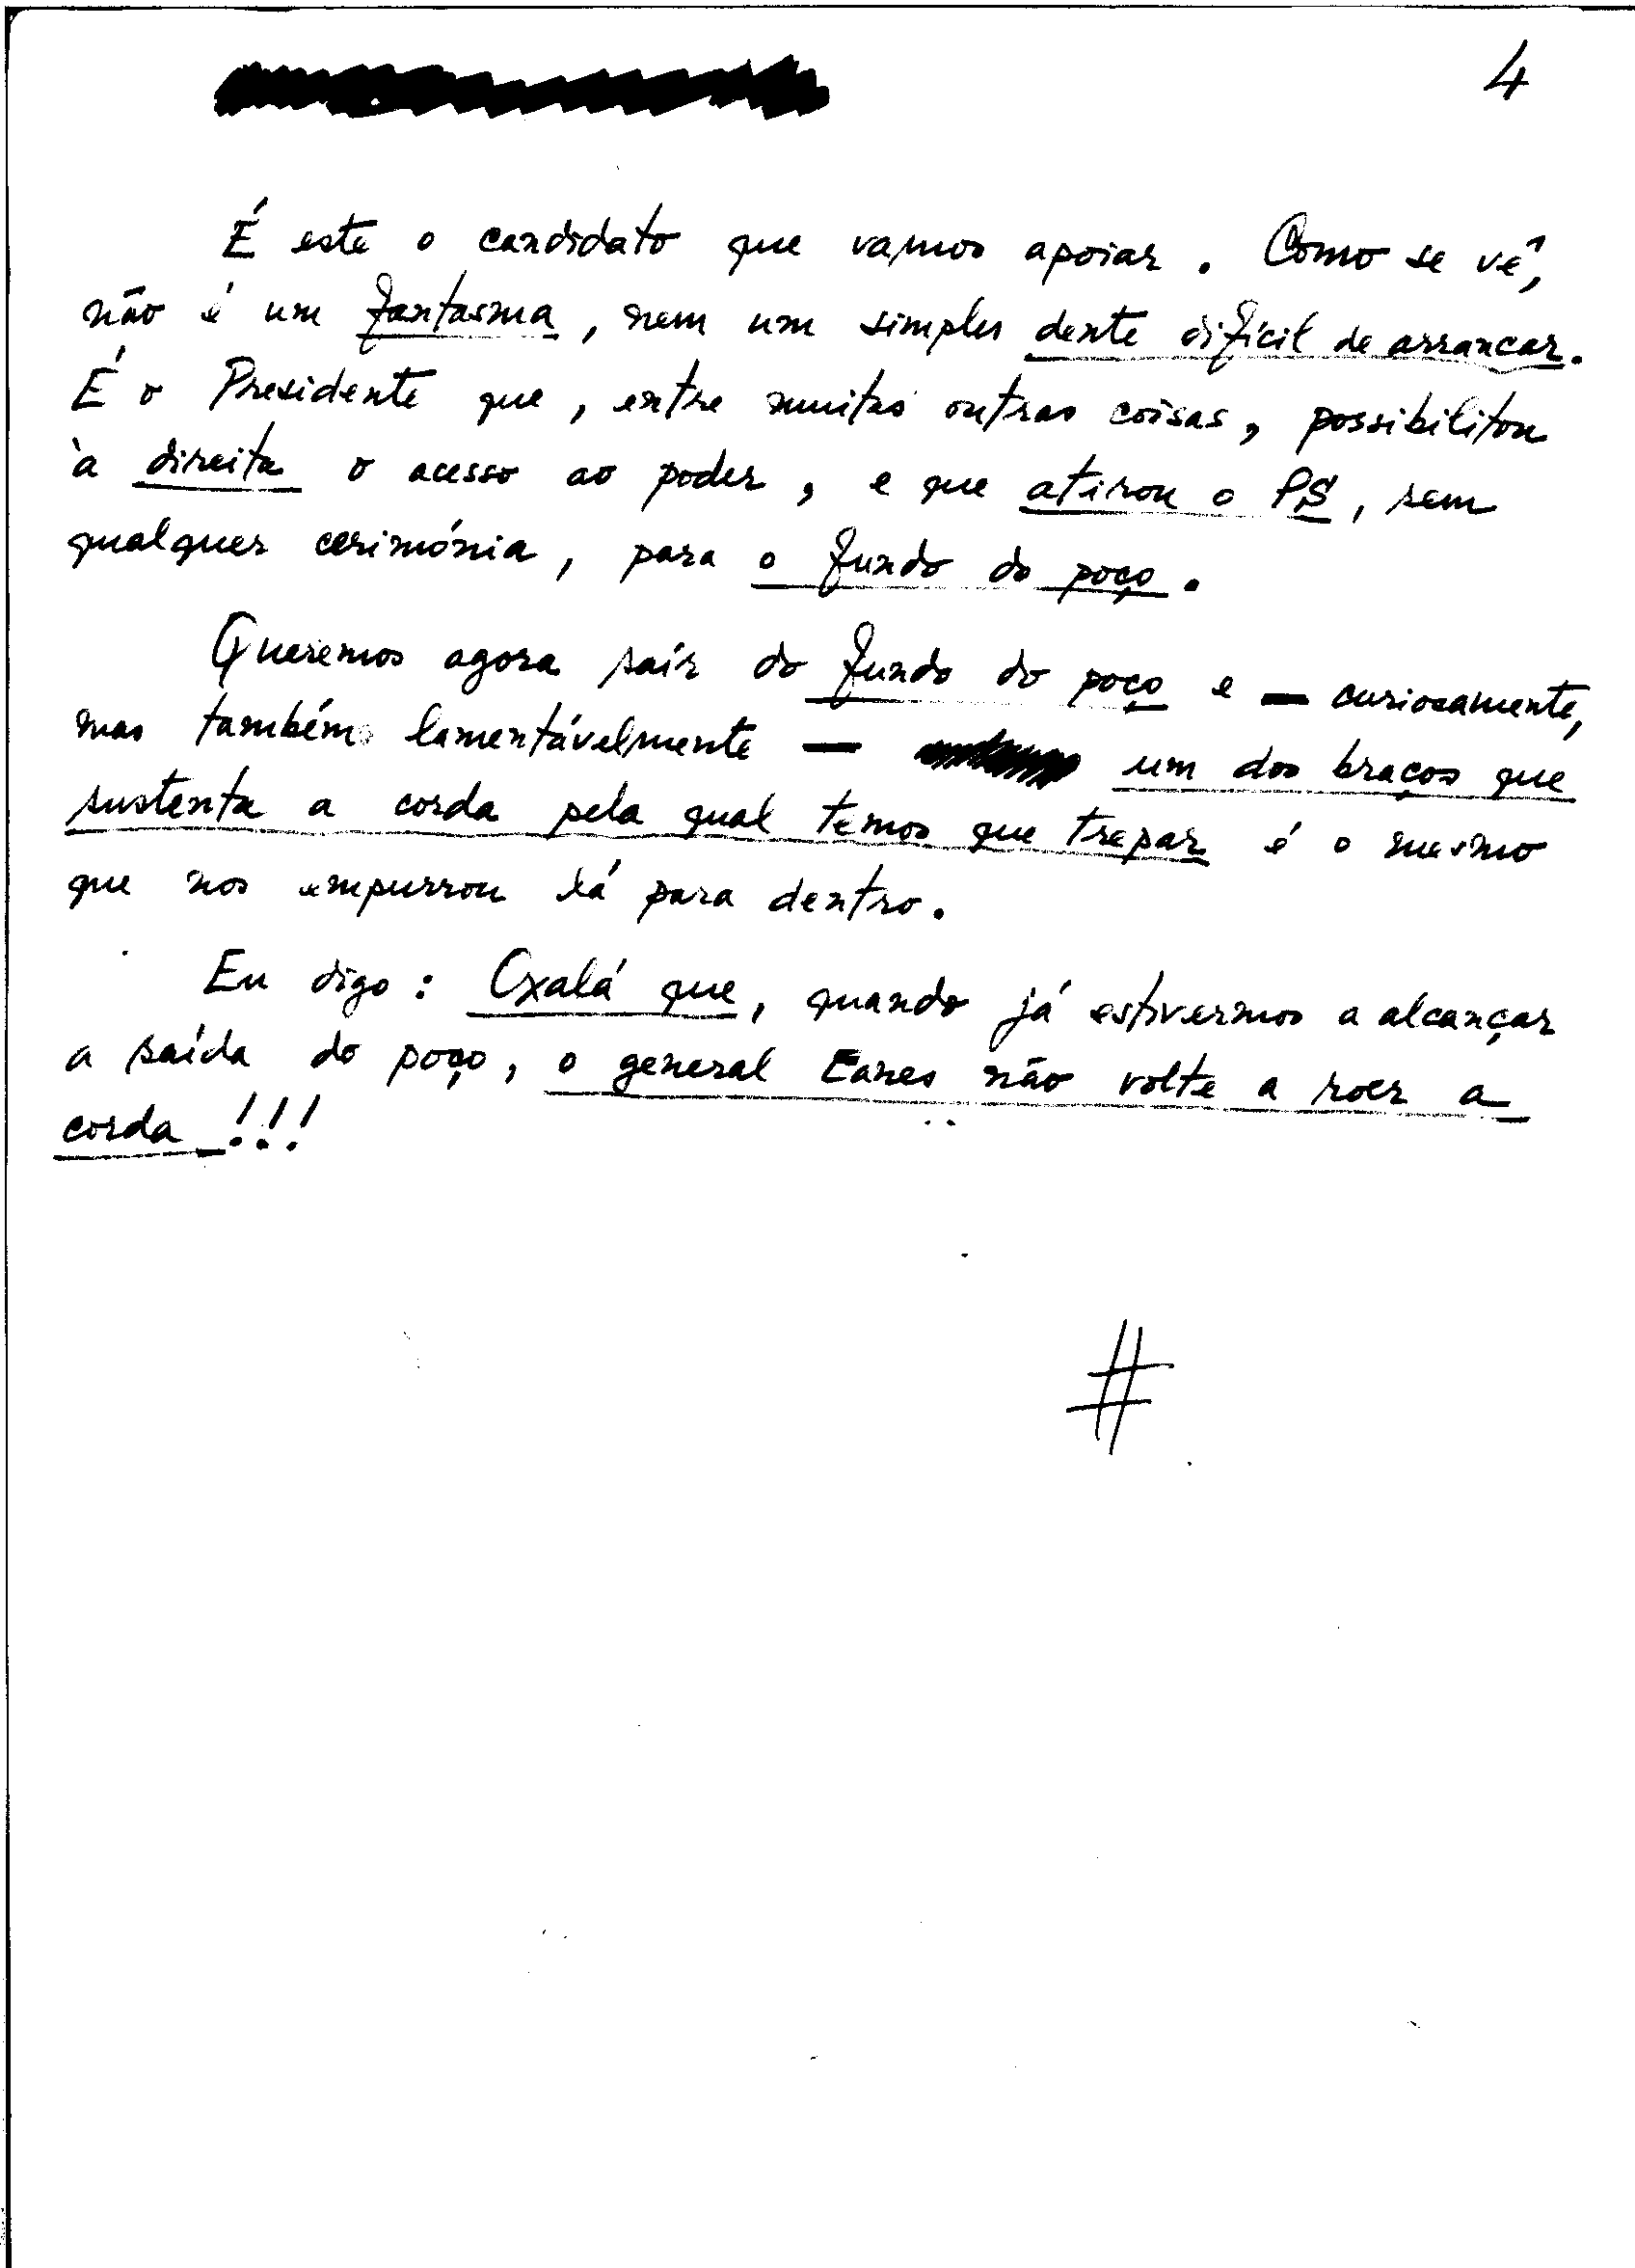 4
É este o candidato que vamos apoiar. Como se vê,
não é um fantasma, nem um simples dente difícil de arrancar.
É o Presidente que, entre muitas outras coisas, possibilitou
à direita o acesso ao poder, e que atirou o PS, sem
qualquer cerimónia, para o fundo do poço.
Queremos agora saír do fundo do poço e — curiosamente,
mas também lamentávelmente — um dos braços que
sustenta a corda pela qual temos que trepar é o mesmo
que nos empurrou lá para dentro.
Eu digo: Oxalá que, quando já estivermos a alcançar
a saída do poço, o general Eanes não volte a roer a
corda!!!
#